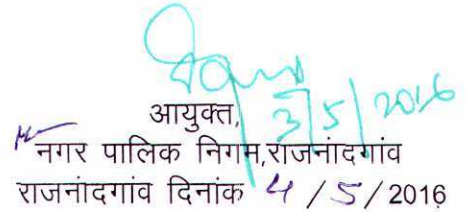 3/5/2016
आयुक्त,
नगर पालिक निगम,राजनांदगांव
राजनांदगांव दिनांक 4 / 5 / 2016